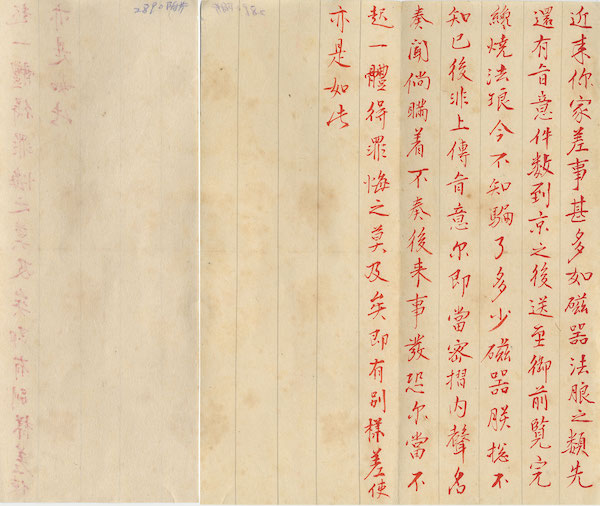 近来你家差事甚多如磁器法瑯之類先
還有旨意件數到京之後送至御前覽完
纔燒法瑯今不知騙了多少磁器朕搃不
知已後非上傳旨意尔即當密摺內聲名
奏聞倘瞞着不奏後来事發恐尔當不
起一體得罪悔之莫及矣即有別樣差使
亦是如此